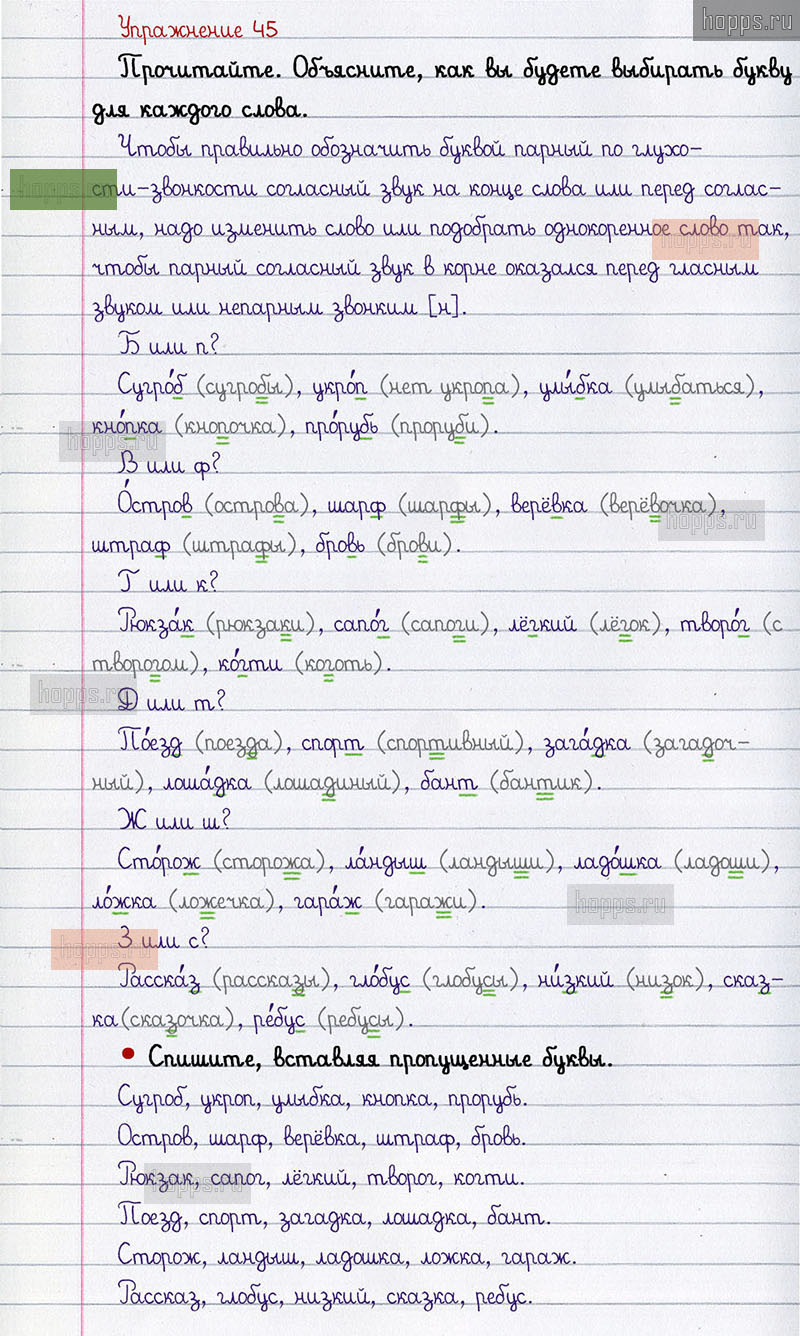 hopps.ru
Упражнение 45
Прочитайте. Объясните, как вы будете выбирать букву
для каждого слова.
Чтобы правильно обозначить буквой парный по глухо-
сти-звонкости согласный звук на конце слова или перед соглас-
ным, надо изменить слово или подобрать однокоренное слово так,
чтобы парный согласный звук в корне оказался перед гласным
звуком или непарным звонким [н].
Б или п?
Сугро́б (сугробы), укро́п (нет укропа), улы́бка (улыбаться),
кно́пка (кнопочка), про́рубь (проруби).
В или ф?
О́стров (острова), шарф (шарфы), верёвка (верёвочка),
штраф (штрафы), бровь (брови).
Г или к?
Рюкза́к (рюкзаки), сапо́г (сапоги), лёгкий (лёгок), творо́г (с
творогом), ко́гти (коготь).
Д или т?
По́езд (поезда), спорт (спортивный), зага́дка (загадоч-
ный), лоша́дка (лошадиный), бант (бантик).
Ж или ш?
Сто́рож (сторожа), ла́ндыш (ландыши), ладо́шка (ладоши),
ло́жка (ложечка), гара́ж (гаражи).
З или с?
Расска́з (рассказы), гло́бус (глобусы), ни́зкий (низок), сказ-
ка(сказочка), ре́бус (ребусы).
• Спишите, вставляя пропущенные буквы.
Сугроб, укроп, улыбка, кнопка, прорубь.
Остров, шарф, верёвка, штраф, бровь.
Рюкзак, сапог, лёгкий, творог, когти.
Поезд, спорт, загадка, лошадка, бант.
Сторож, ландыш, ладошка, ложка, гараж.
Рассказ, глобус, низкий, сказка, ребус.